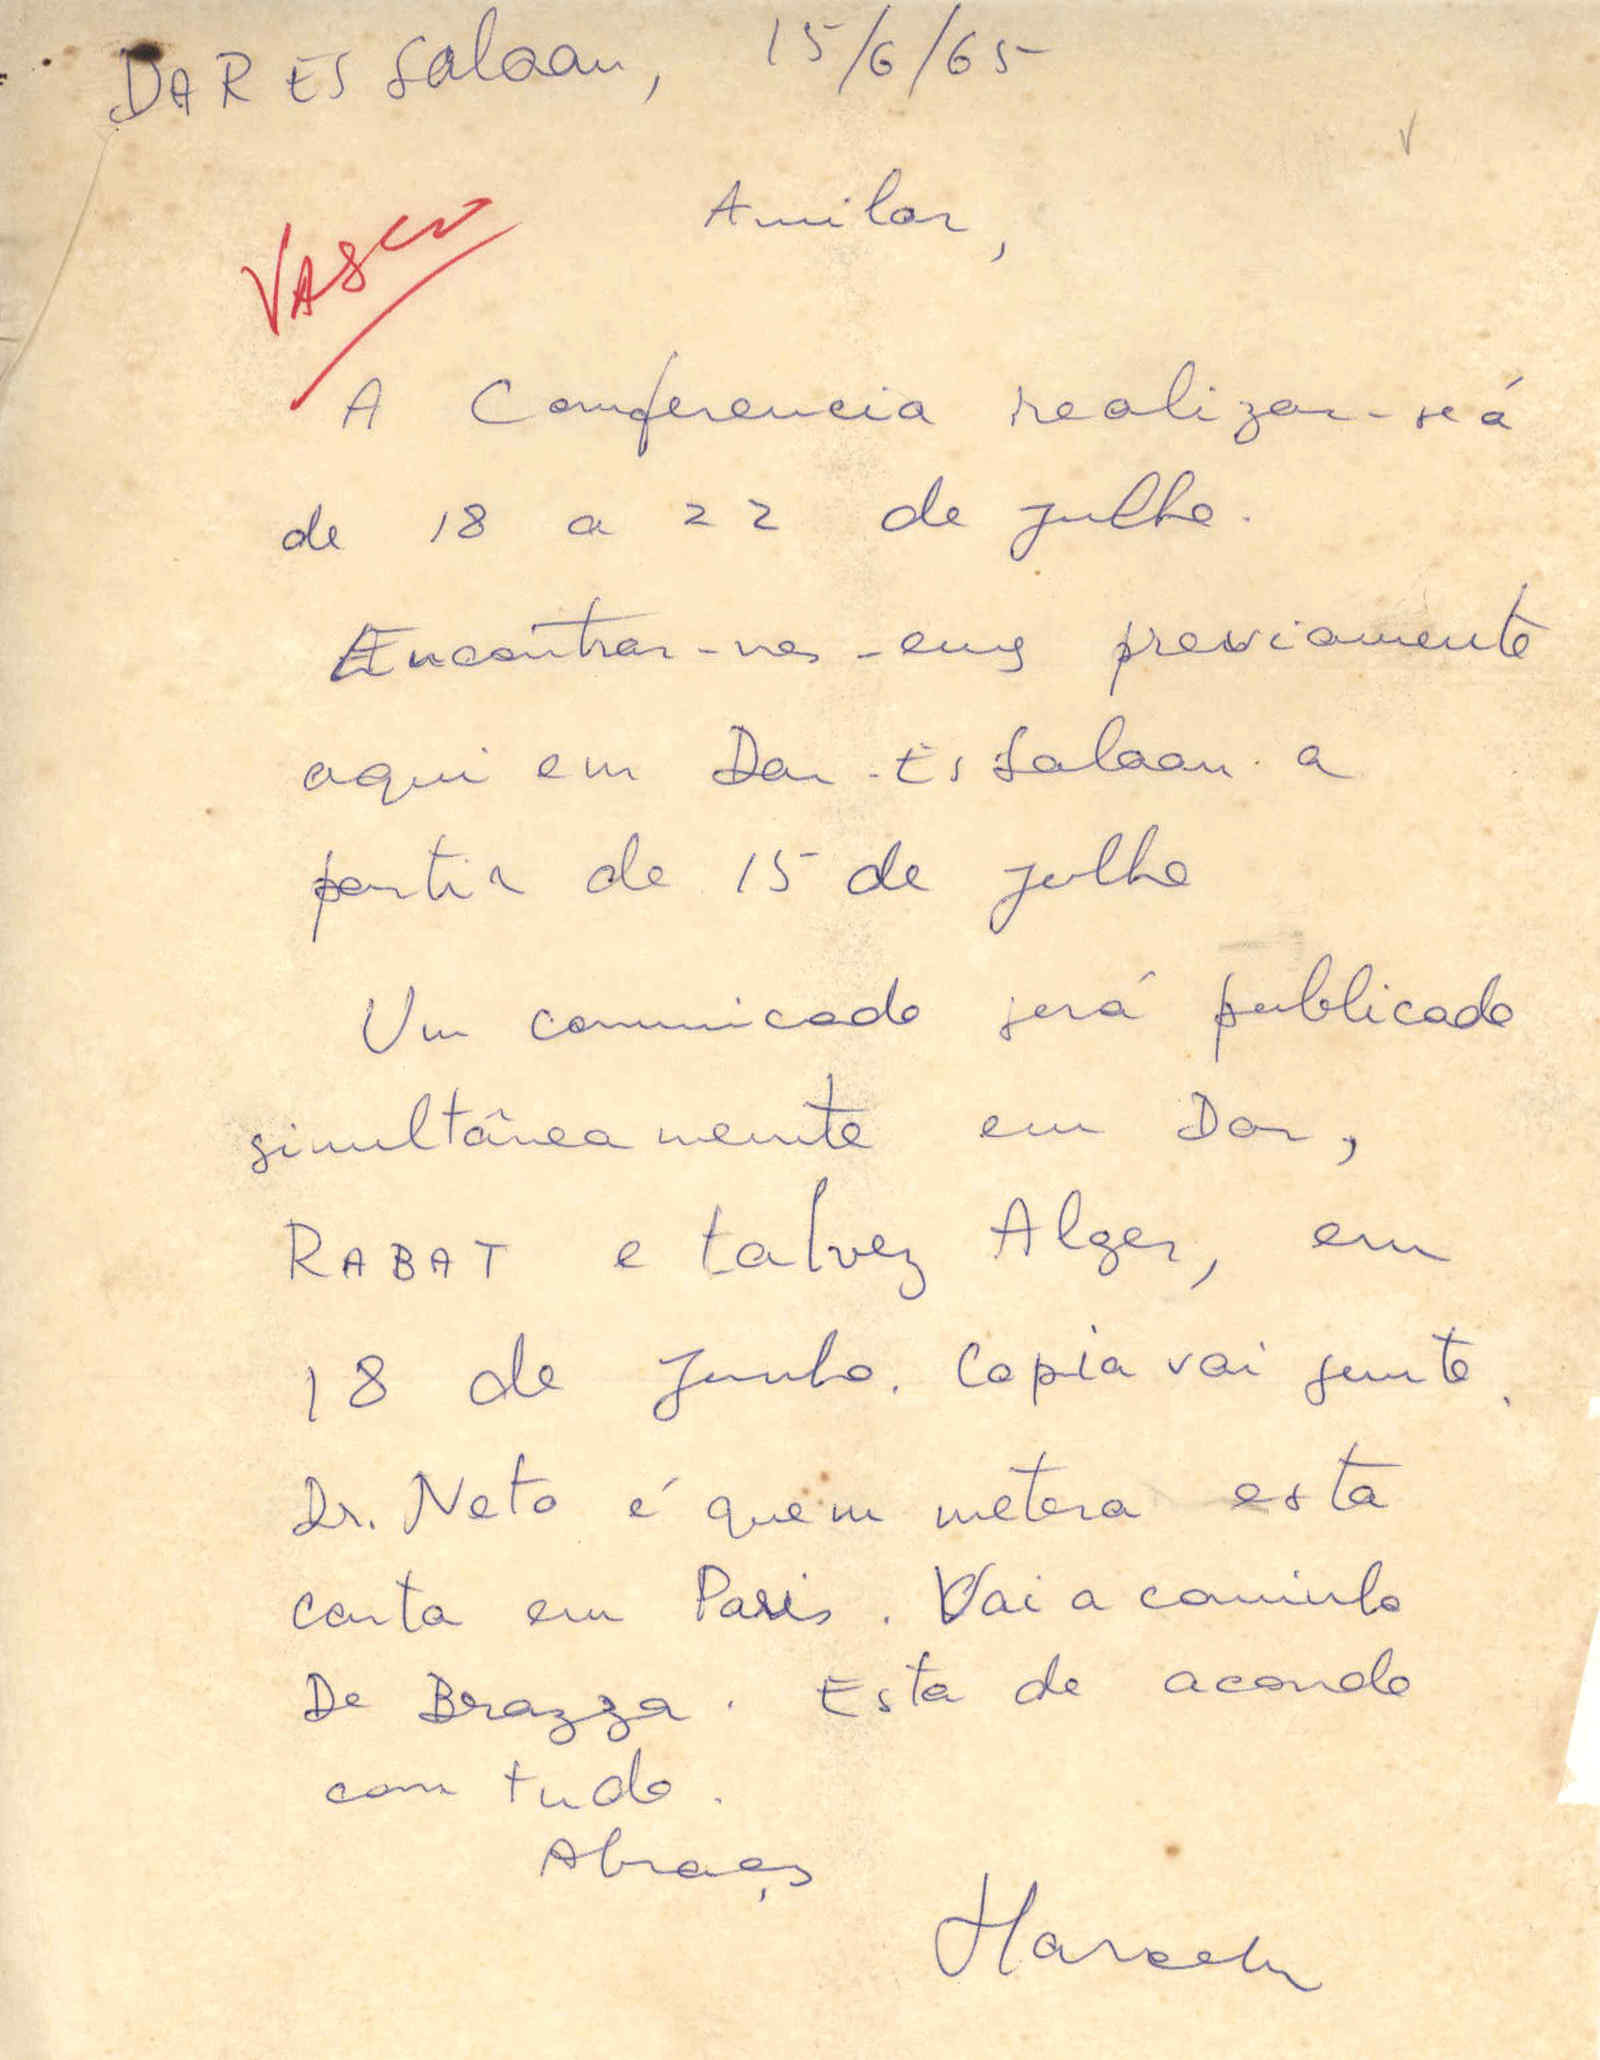 DAR ES Salaam, 15/6/65
Amilcar,
VASCO
A Conferencia realizar-se á
de 18 a 22 de Julho.
Encontrar-nos-emos previamente
aqui em Dar-Es Salaam a
partir de 15 de Julho
Um comunicado será publicado
simultâneamente em Dar,
RABAT e talvez Alger, em
18 de Junho. Copia vai junto.
Dr. Neto é quem metera esta
carta em Paris. Vai a caminho
De Brazza. Esta de acordo
com tudo.
Abraços
Marcelino